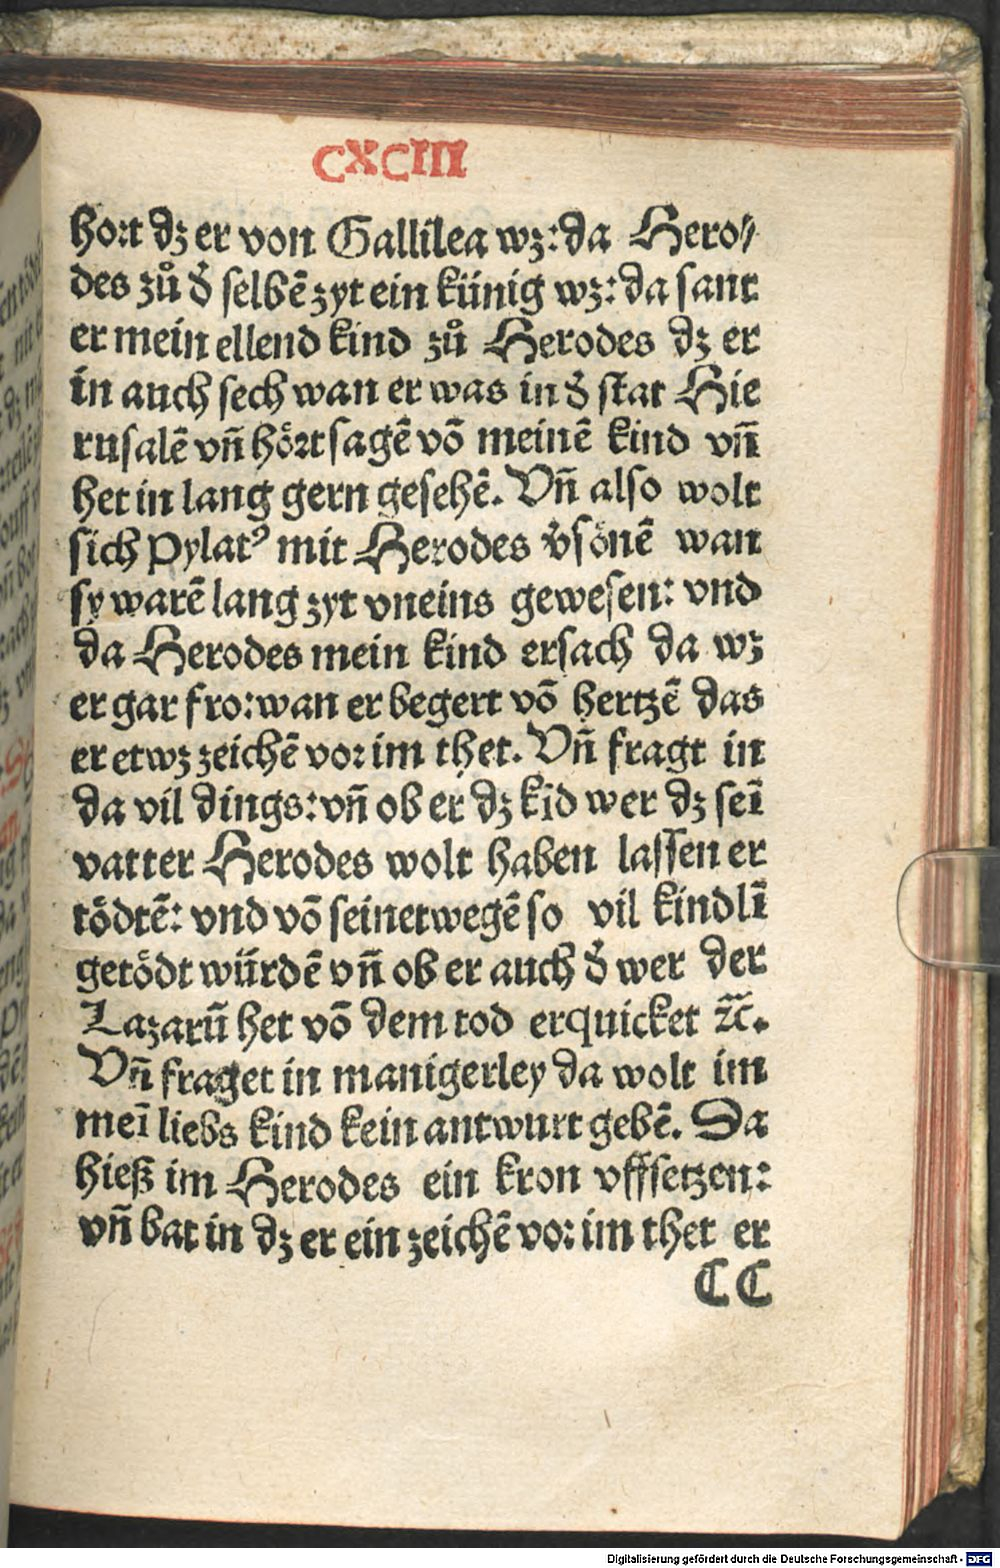 CXCIII
hort dz er von Gallilea wz: da Hero⸗
des zů d̕ selbē zyt ein künig wz: da sant
er mein ellend kind zů Herodes dz er
in auch sech wan er was in d̕ stat Hie
rusalē vn̄ hört sagē vō meinē kind vn̄
het in lang gern gesehē. Vn̄ also wolt
sich Pylatꝰ mit Herodes v̕sönē wan
sy warē lang zyt vneins gewesen: vnd
da Herodes mein kind ersach da wz
er gar fro: wan er begert vō hertzē das
er etwz zeichē vor im thet. Vn̄ fragt in
da vil dings: vn̄ ob er dz kīd wer dz seī
vatter Herodes wolt haben lassen er
tödtē: vnd vō seinetwegē so vil kindlī
getödt würdē vn̄ ob er auch d̕ wer der
Lazarū het vō dem tod erquicket ⁊c̄.
Vn̄ fraget in manigerley da wolt im
meī liebs kind kein antwurt gebē. Da
hieß im Herodes ein kron vffsetzen:
vn̄ bat in dz er ein zeichē vor im thet er
CC
Digitalisierung gefördert durch die Deutsche Forschungsgemeinschaft - DFG